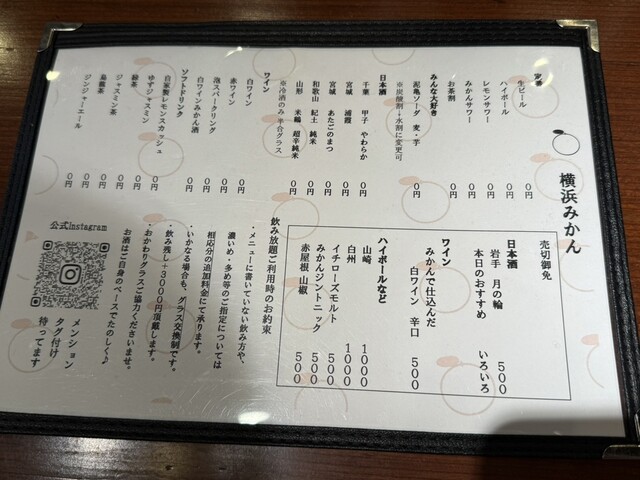 横浜みかん
定番
生ビール 0円
ハイボール 0円
レモンサワー 0円
みかんサワー 0円
お茶割 0円
みんな大好き
泥亀ソーダ 麦・芋 0円
※炭酸割→水割に変更可
日本酒
千葉 甲子 やわらか 0円
宮城 浦霞 0円
宮城 あたごのまつ 0円
和歌山 紀土 純米 0円
山形 米鶴 超辛純米 0円
※冷酒のみ 半合グラス
ワイン
白ワイン 0円
赤ワイン 0円
泡スパークリング 0円
白ワインみかん酒 0円
ソフトドリンク
自家製レモンスカッシュ 0円
ゆずジャスミン 0円
緑茶 0円
ジャスミン茶 0円
烏龍茶 0円
ジンジャーエール 0円
売切御免
日本酒
岩手 月の輪 500
本日のおすすめ いろいろ
ワイン
みかんで仕込んだ
白ワイン 辛口 500
ハイボールなど
山崎 1000
白州 1000
イチローズモルト 500
みかんジントニック 500
赤屋根 山椒 500
飲み放題ご利用時のお約束
・メニューに書いていない飲み方や、
濃いめ・多め等のご指定については
相応分の追加料金にて承ります。
・いかなる場合も、グラス交換制です。
・飲み残し+3000円頂戴します。
・おかわりグラスご協力くださいませ。
お酒はご自身のペースでたのしく♪
公式Instagram
メンション
タグ付け
待ってます